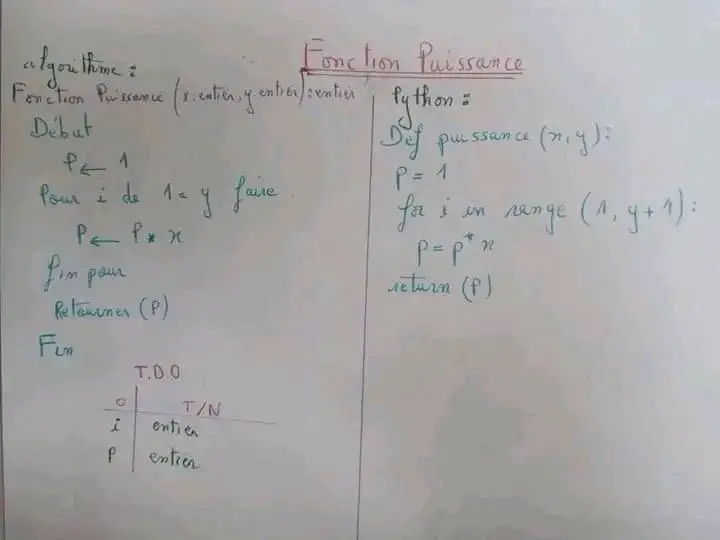 Fonction Puissance
algorithme :
Fonction Puissance (x:entier, y:entier):entier
Début
P ← 1
Pour i de 1 à y faire
P ← P * x
fin pour
Retourner (P)
Fin
T.D.O
O T/N
i entier
P entier
Python :
Def puissance (x, y) :
P = 1
for i in range (1, y + 1) :
P = P * x
return (P)